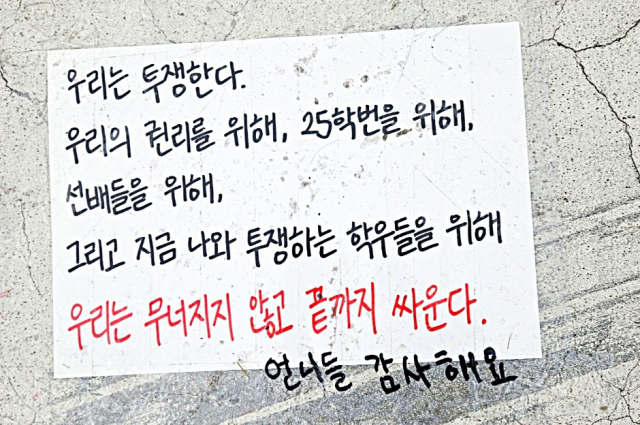 우리는 투쟁한다.
우리의 권리를 위해, 25학번을 위해,
선배들을 위해,
그리고 지금 나와 투쟁하는 학우들을 위해
우리는 무너지지 않고 끝까지 싸운다.
언니들 감사해요